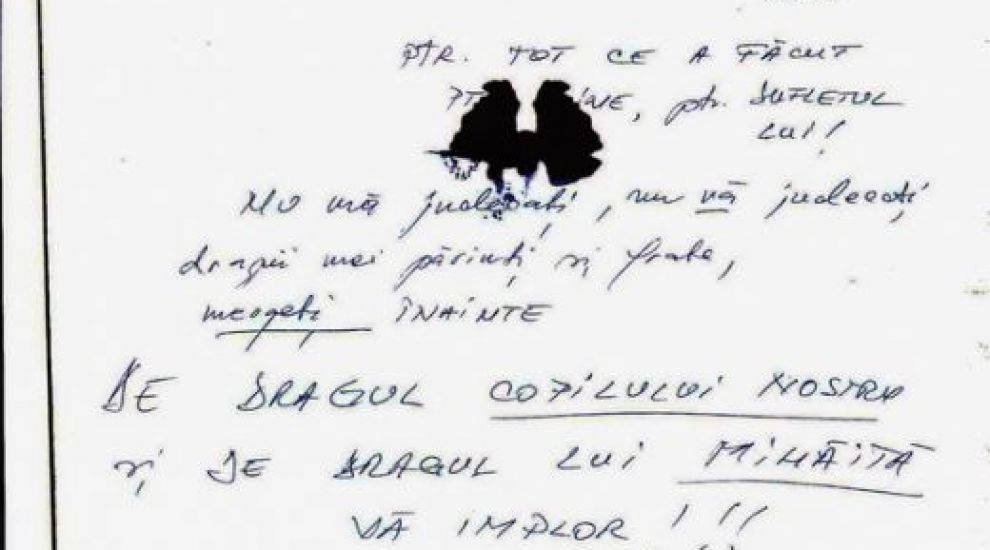 PTR. TOT CE A FĂCUT
ptr. SUFLETUL
LUI!
NU mă judecați, nu vă judecați
dragii mei părinți și frate,
mergeți ÎNAINTE
DE DRAGUL COPILULUI NOSTRU
și DE DRAGUL LUI MIHĂIȚĂ
VĂ IMPLOR !!!